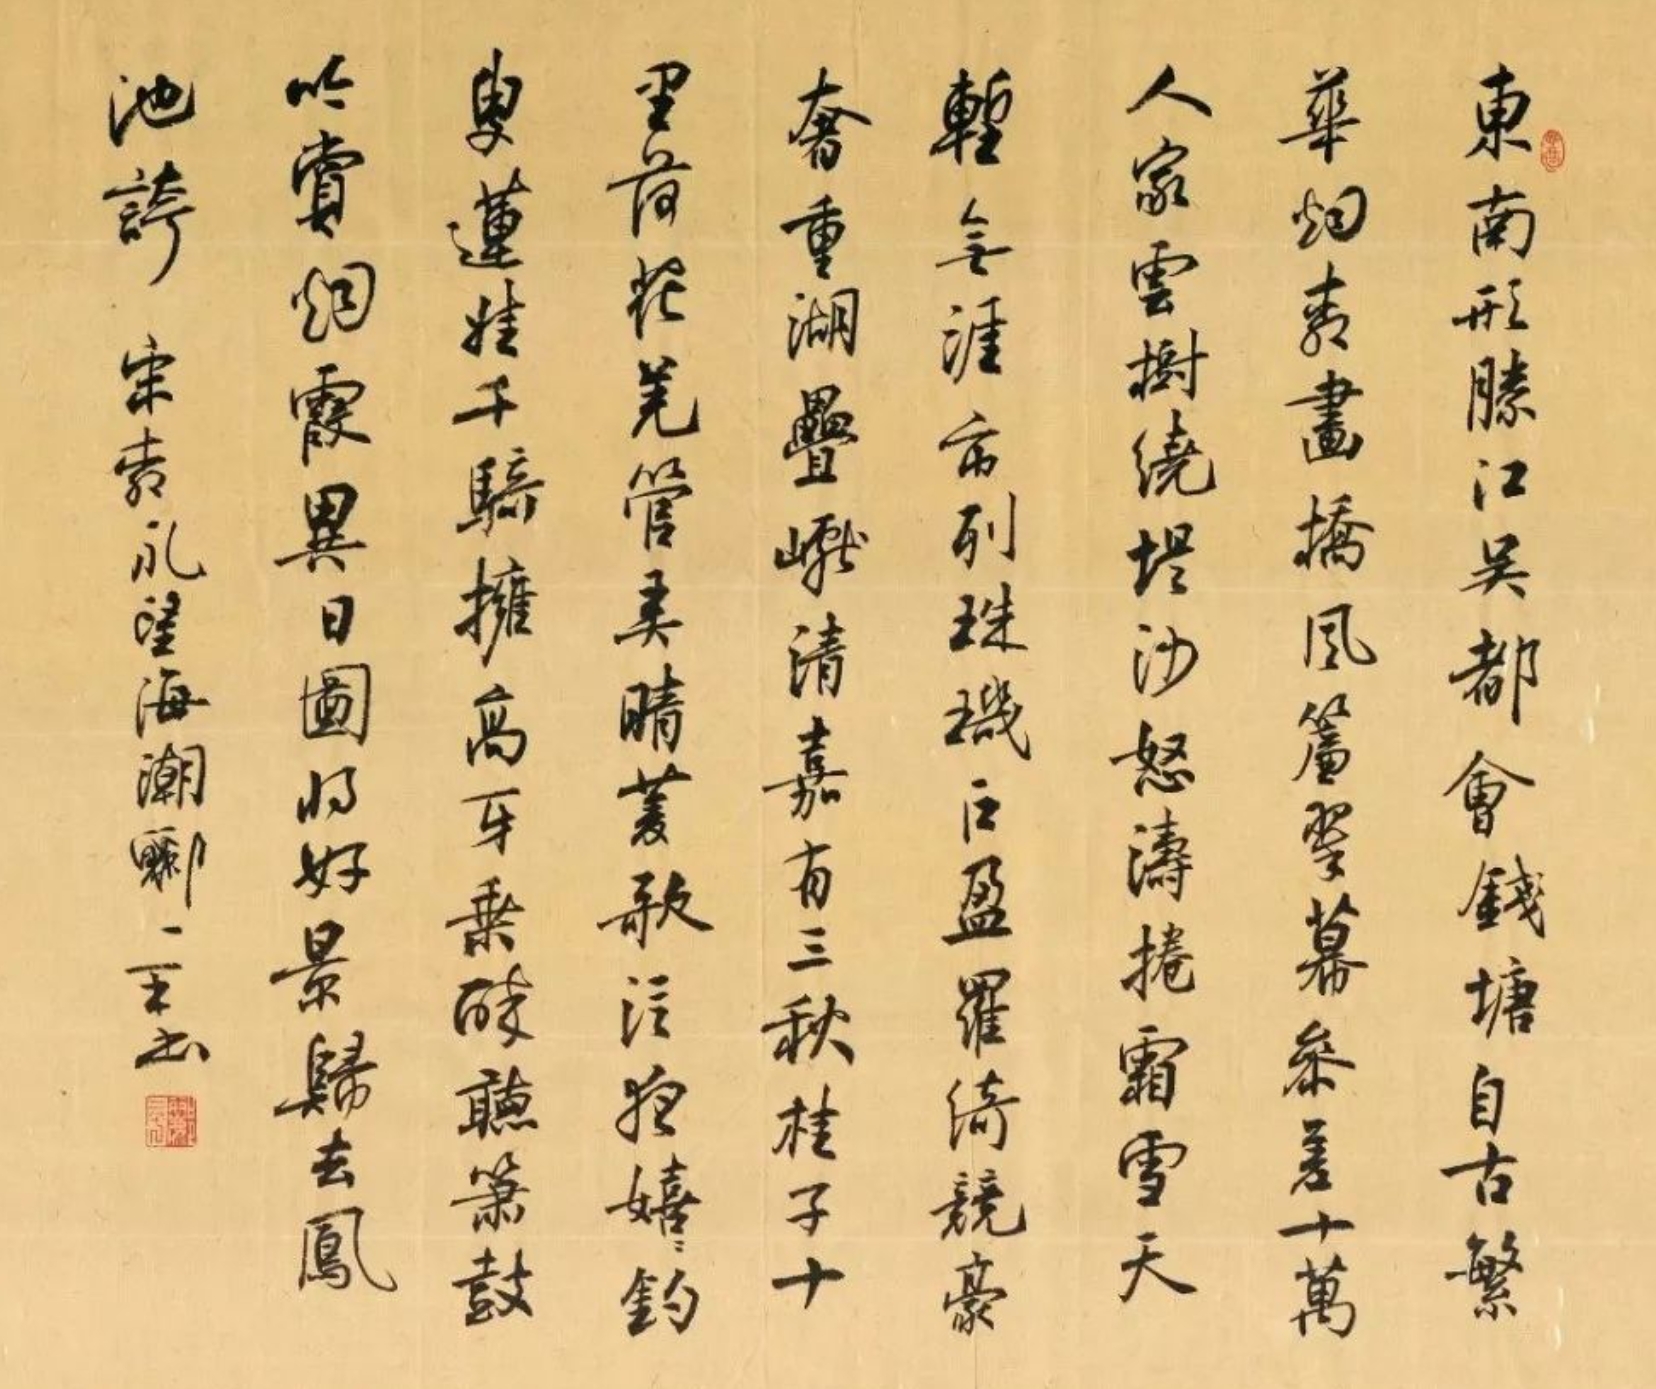 東南形勝江吳都會錢塘自古繁
華烟柳畫橋風簾翠幕參差十萬
人家雲樹繞堤沙怒濤捲霜雪天
塹無涯市列珠璣戶盈羅綺競豪
奢重湖疊巘清嘉有三秋桂子十
里荷花羌管弄晴菱歌泛夜嬉〻釣
叟蓮娃千騎擁高牙乘醉聽簫鼓
吟賞烟霞異日圖將好景歸去鳳
池誇 宋柳永望海潮 书